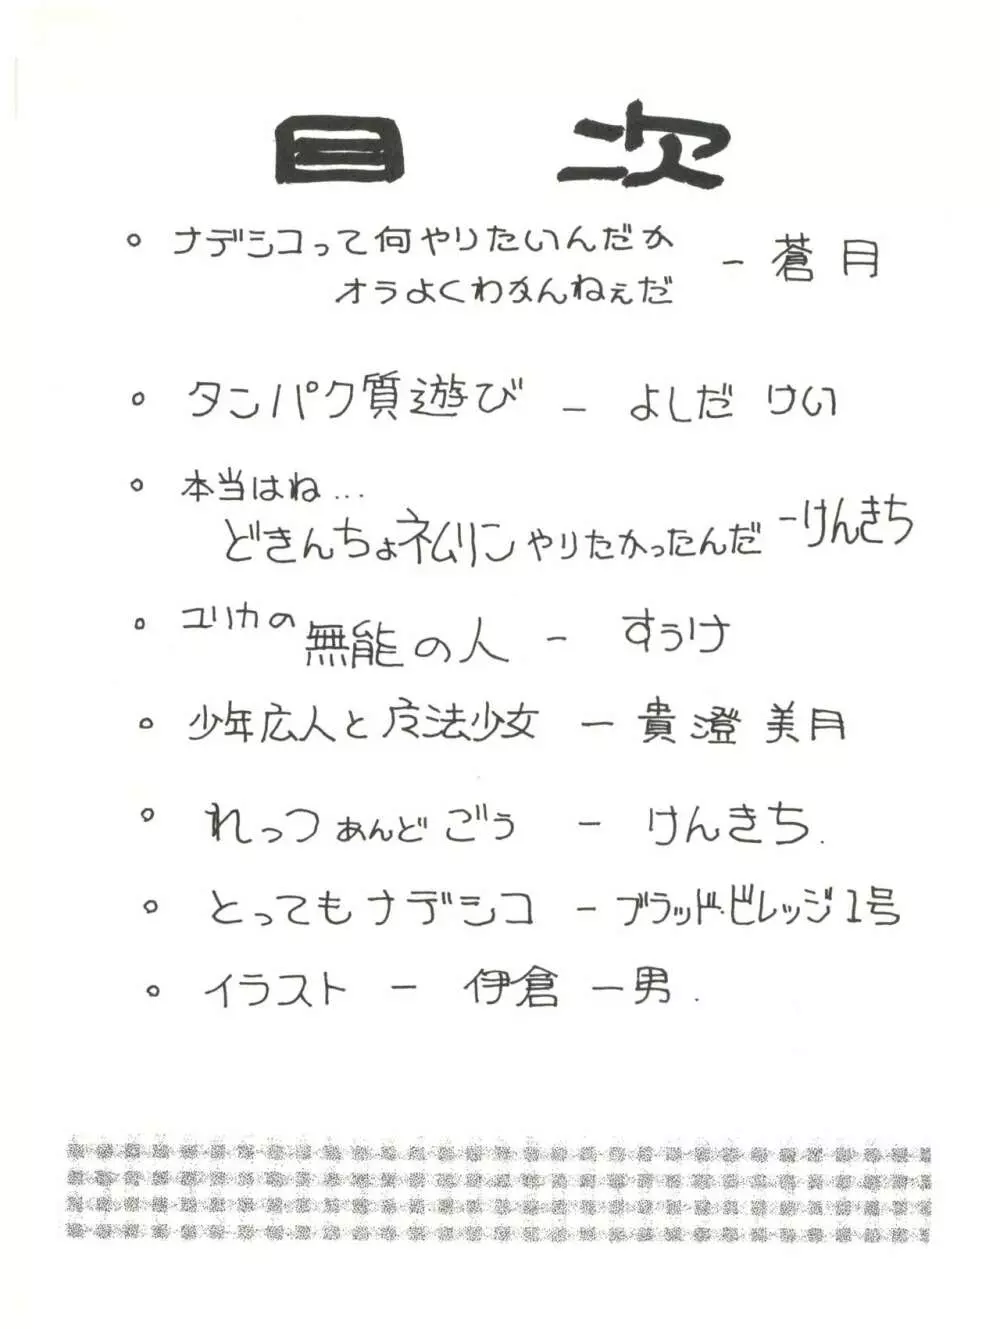 目次
。ナデシコって何やりたいんだか
オラよくわかんねぇだ - 蒼月
。タンパク質遊び - よしだ けい
。本当はね...
どきんちょネムリンやりたかったんだ - けんきち
。ユリカの無能の人 - すぅけ
。少年広人と魔法少女 - 貴澄美月
。れっつぁんどごぅ - けんきち.
。とってもナデシコ - ブラッド・ビレッジ1号
。イラスト - 伊倉一男.